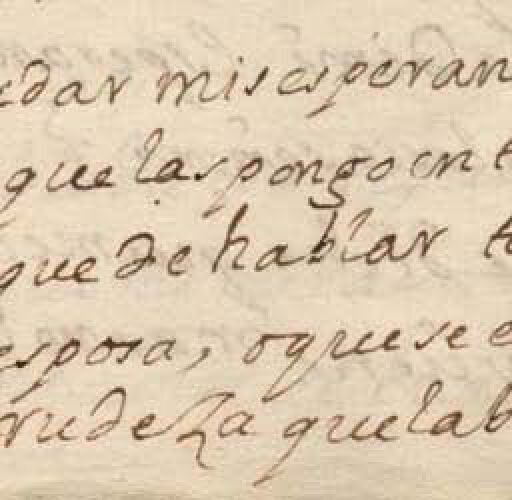 edar mis esperan
que las pongo en t
que de hablar t
esposa, o que se e
rudeza que lab